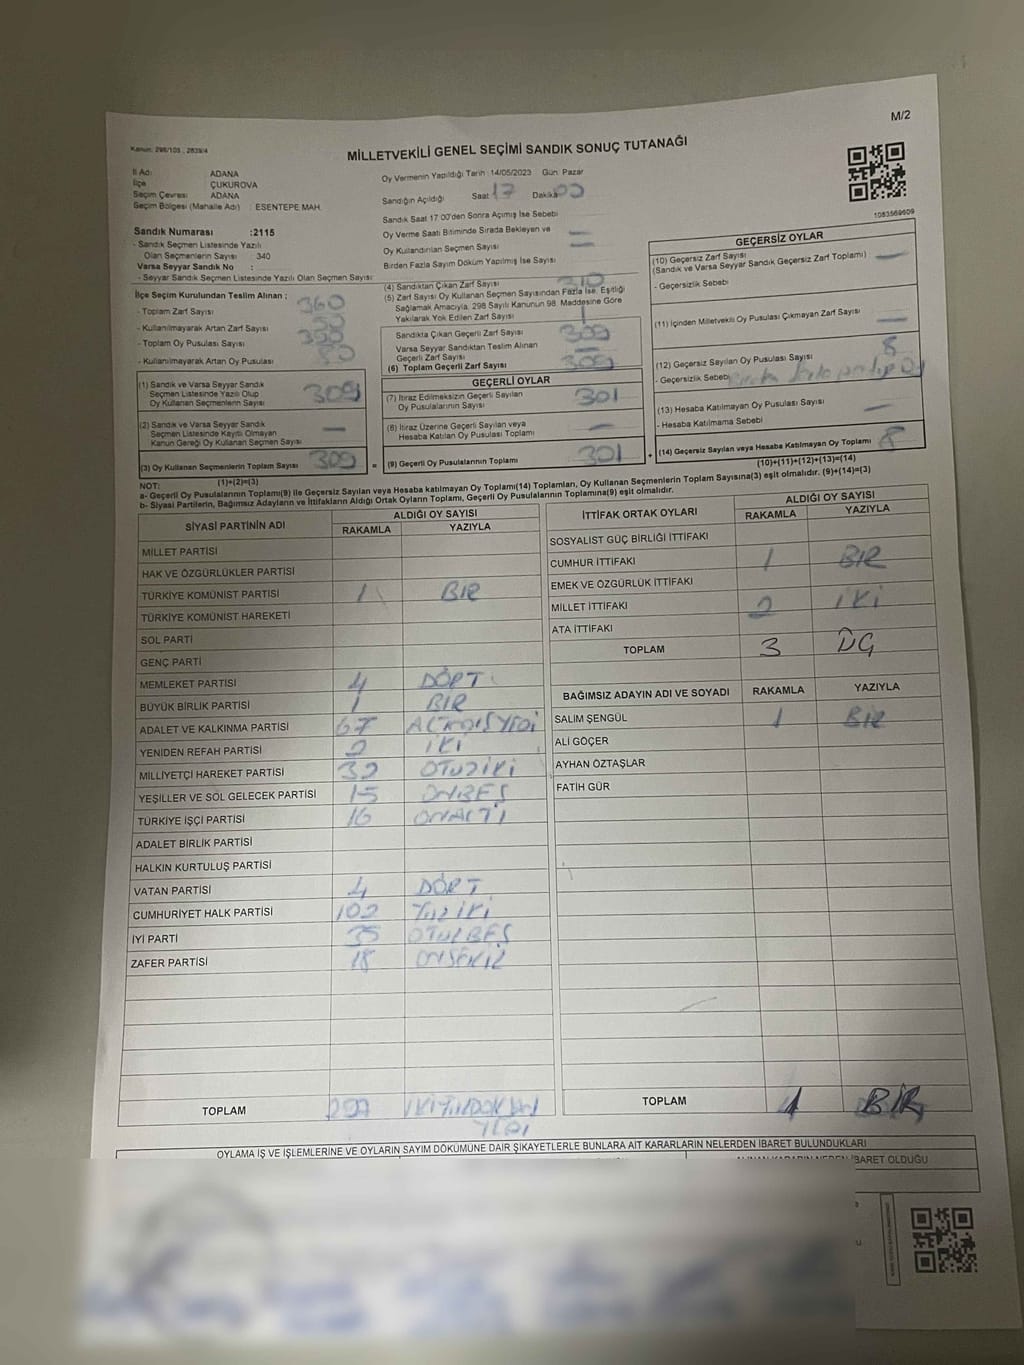 M/2
Kanun: 298/105, 2839/4
MİLLETVEKİLİ GENEL SEÇİMİ SANDIK SONUÇ TUTANAĞI
İl Adı ADANA
İlçe ÇUKUROVA
Seçim Çevresi ADANA
Seçim Bölgesi (Mahalle Adı) : ESENTEPE MAH.
Oy Vermenin Yapıldığı Tarih : 14/05/2023 Gün Pazar
Sandığın Açıldığı Saat 17 Dakika 00
Sandık Saat 17:00'den Sonra Açımış İse Sebebi
Oy Verme Saati Bitiminde Sırada Bekleyen ve
Oy Kullandırılan Seçmen Sayısı
Birden Fazla Sayım Döküm Yapılmış İse Sayısı
1083569609
Sandık Numarası :2115
- Sandık Seçmen Listesinde Yazılı
Olan Seçmenlerin Sayısı 340
Varsa Seyyar Sandık No :
- Seyyar Sandık Seçmen Listesinde Yazılı Olan Seçmen Sayısı:
İlçe Seçim Kurulundan Teslim Alınan ;
- Toplam Zarf Sayısı 360
- Kullanılmayarak Artan Zarf Sayısı
- Toplam Oy Pusulası Sayısı
- Kullanılmayarak Artan Oy Pusulası
(1) Sandık ve Varsa Seyyar Sandık
Seçmen Listesinde Yazılı Olup
Oy Kullanan Seçmenlerin Sayısı 309
(2) Sandık ve Varsa Seyyar Sandık
Seçmen Listesinde Kayıtlı Olmayan
Kanun Gereği Oy Kullanan Seçmen Sayısı —
(3) Oy Kullanan Seçmenlerin Toplam Sayısı 309 =
(1)+(2)=(3)
(4) Sandıktan Çıkan Zarf Sayısı 310
(5) Zarf Sayısı Oy Kullanan Seçmen Sayısından Fazla İse, Eşitliği
Sağlamak Amacıyla, 298 Sayılı Kanunun 98. Maddesine Göre
Yakılarak Yok Edilen Zarf Sayısı 1
Sandıkta Çıkan Geçerli Zarf Sayısı 309
Varsa Seyyar Sandıktan Teslim Alınan
Geçerli Zarf Sayısı —
(6) Toplam Geçerli Zarf Sayısı 309
GEÇERLİ OYLAR
(7) İtiraz Edilmeksizin Geçerli Sayılan
Oy Pusulalarının Sayısı 301
(8) İtiraz Üzerine Geçerli Sayılan veya
Hesaba Katılan Oy Pusulası Toplamı —
(9) Geçerli Oy Pusulalarının Toplamı 301 +
GEÇERSİZ OYLAR
(10) Geçersiz Zarf Sayısı
(Sandık ve Varsa Seyyar Sandık Geçersiz Zarf Toplamı) —
- Geçersizlik Sebebi
(11) İçinden Milletvekili Oy Pusulası Çıkmayan Zarf Sayısı —
(12) Geçersiz Sayılan Oy Pusulası Sayısı 8
- Geçersizlik Sebebi
(13) Hesaba Katılmayan Oy Pusulası Sayısı —
- Hesaba Katılmama Sebebi
(14) Geçersiz Sayılan veya Hesaba Katılmayan Oy Toplamı 8
(10)+(11)+(12)+(13)=(14)
NOT:
a- Geçerli Oy Pusulalarının Toplamı(9) ile Geçersiz Sayılan veya Hesaba katılmayan Oy Toplamı(14) Toplamları, Oy Kullanan Seçmenlerin Toplam Sayısına(3) eşit olmalıdır. (9)+(14)=(3)
b- Siyasi Partilerin, Bağımsız Adayların ve İttifakların Aldığı Ortak Oyların Toplamı, Geçerli Oy Pusulalarının Toplamına(9) eşit olmalıdır.
SİYASİ PARTİNİN ADI ALDIĞI OY SAYISI
RAKAMLA YAZIYLA
MİLLET PARTİSİ
HAK VE ÖZGÜRLÜKLER PARTİSİ
TÜRKİYE KOMÜNİST PARTİSİ 1 BİR
TÜRKİYE KOMÜNİST HAREKETİ
SOL PARTİ
GENÇ PARTİ
MEMLEKET PARTİSİ 4 DÖRT
BÜYÜK BİRLİK PARTİSİ 1 BİR
ADALET VE KALKINMA PARTİSİ 67 ALTMIŞYEDİ
YENİDEN REFAH PARTİSİ 2 İKİ
MİLLİYETÇİ HAREKET PARTİSİ 32 OTUZİKİ
YEŞİLLER VE SOL GELECEK PARTİSİ 15 ONBEŞ
TÜRKİYE İŞÇİ PARTİSİ 16 ONALTI
ADALET BİRLİK PARTİSİ
HALKIN KURTULUŞ PARTİSİ
VATAN PARTİSİ 4 DÖRT
CUMHURİYET HALK PARTİSİ 102 YÜZ İKİ
İYİ PARTİ 35 OTUZBEŞ
ZAFER PARTİSİ 18 ONSEKİZ
TOPLAM 297 İKİYÜZDOKSAN
YEDİ
İTTİFAK ORTAK OYLARI ALDIĞI OY SAYISI
RAKAMLA YAZIYLA
SOSYALİST GÜÇ BİRLİĞİ İTTİFAKI
CUMHUR İTTİFAKI 1 BİR
EMEK VE ÖZGÜRLÜK İTTİFAKI
MİLLET İTTİFAKI 2 İKİ
ATA İTTİFAKI
TOPLAM 3 ÜÇ
BAĞIMSIZ ADAYIN ADI VE SOYADI RAKAMLA YAZIYLA
SALİM ŞENGÜL 1 BİR
ALİ GÖÇER
AYHAN ÖZTAŞLAR
FATİH GÜR
TOPLAM 1 BİR
OYLAMA İŞ VE İŞLEMLERİNE VE OYLARIN SAYIM DÖKÜMÜNE DAİR ŞİKAYETLERLE BUNLARA AİT KARARLARIN NELERDEN İBARET BULUNDUKLARI
İBARET OLDUĞU